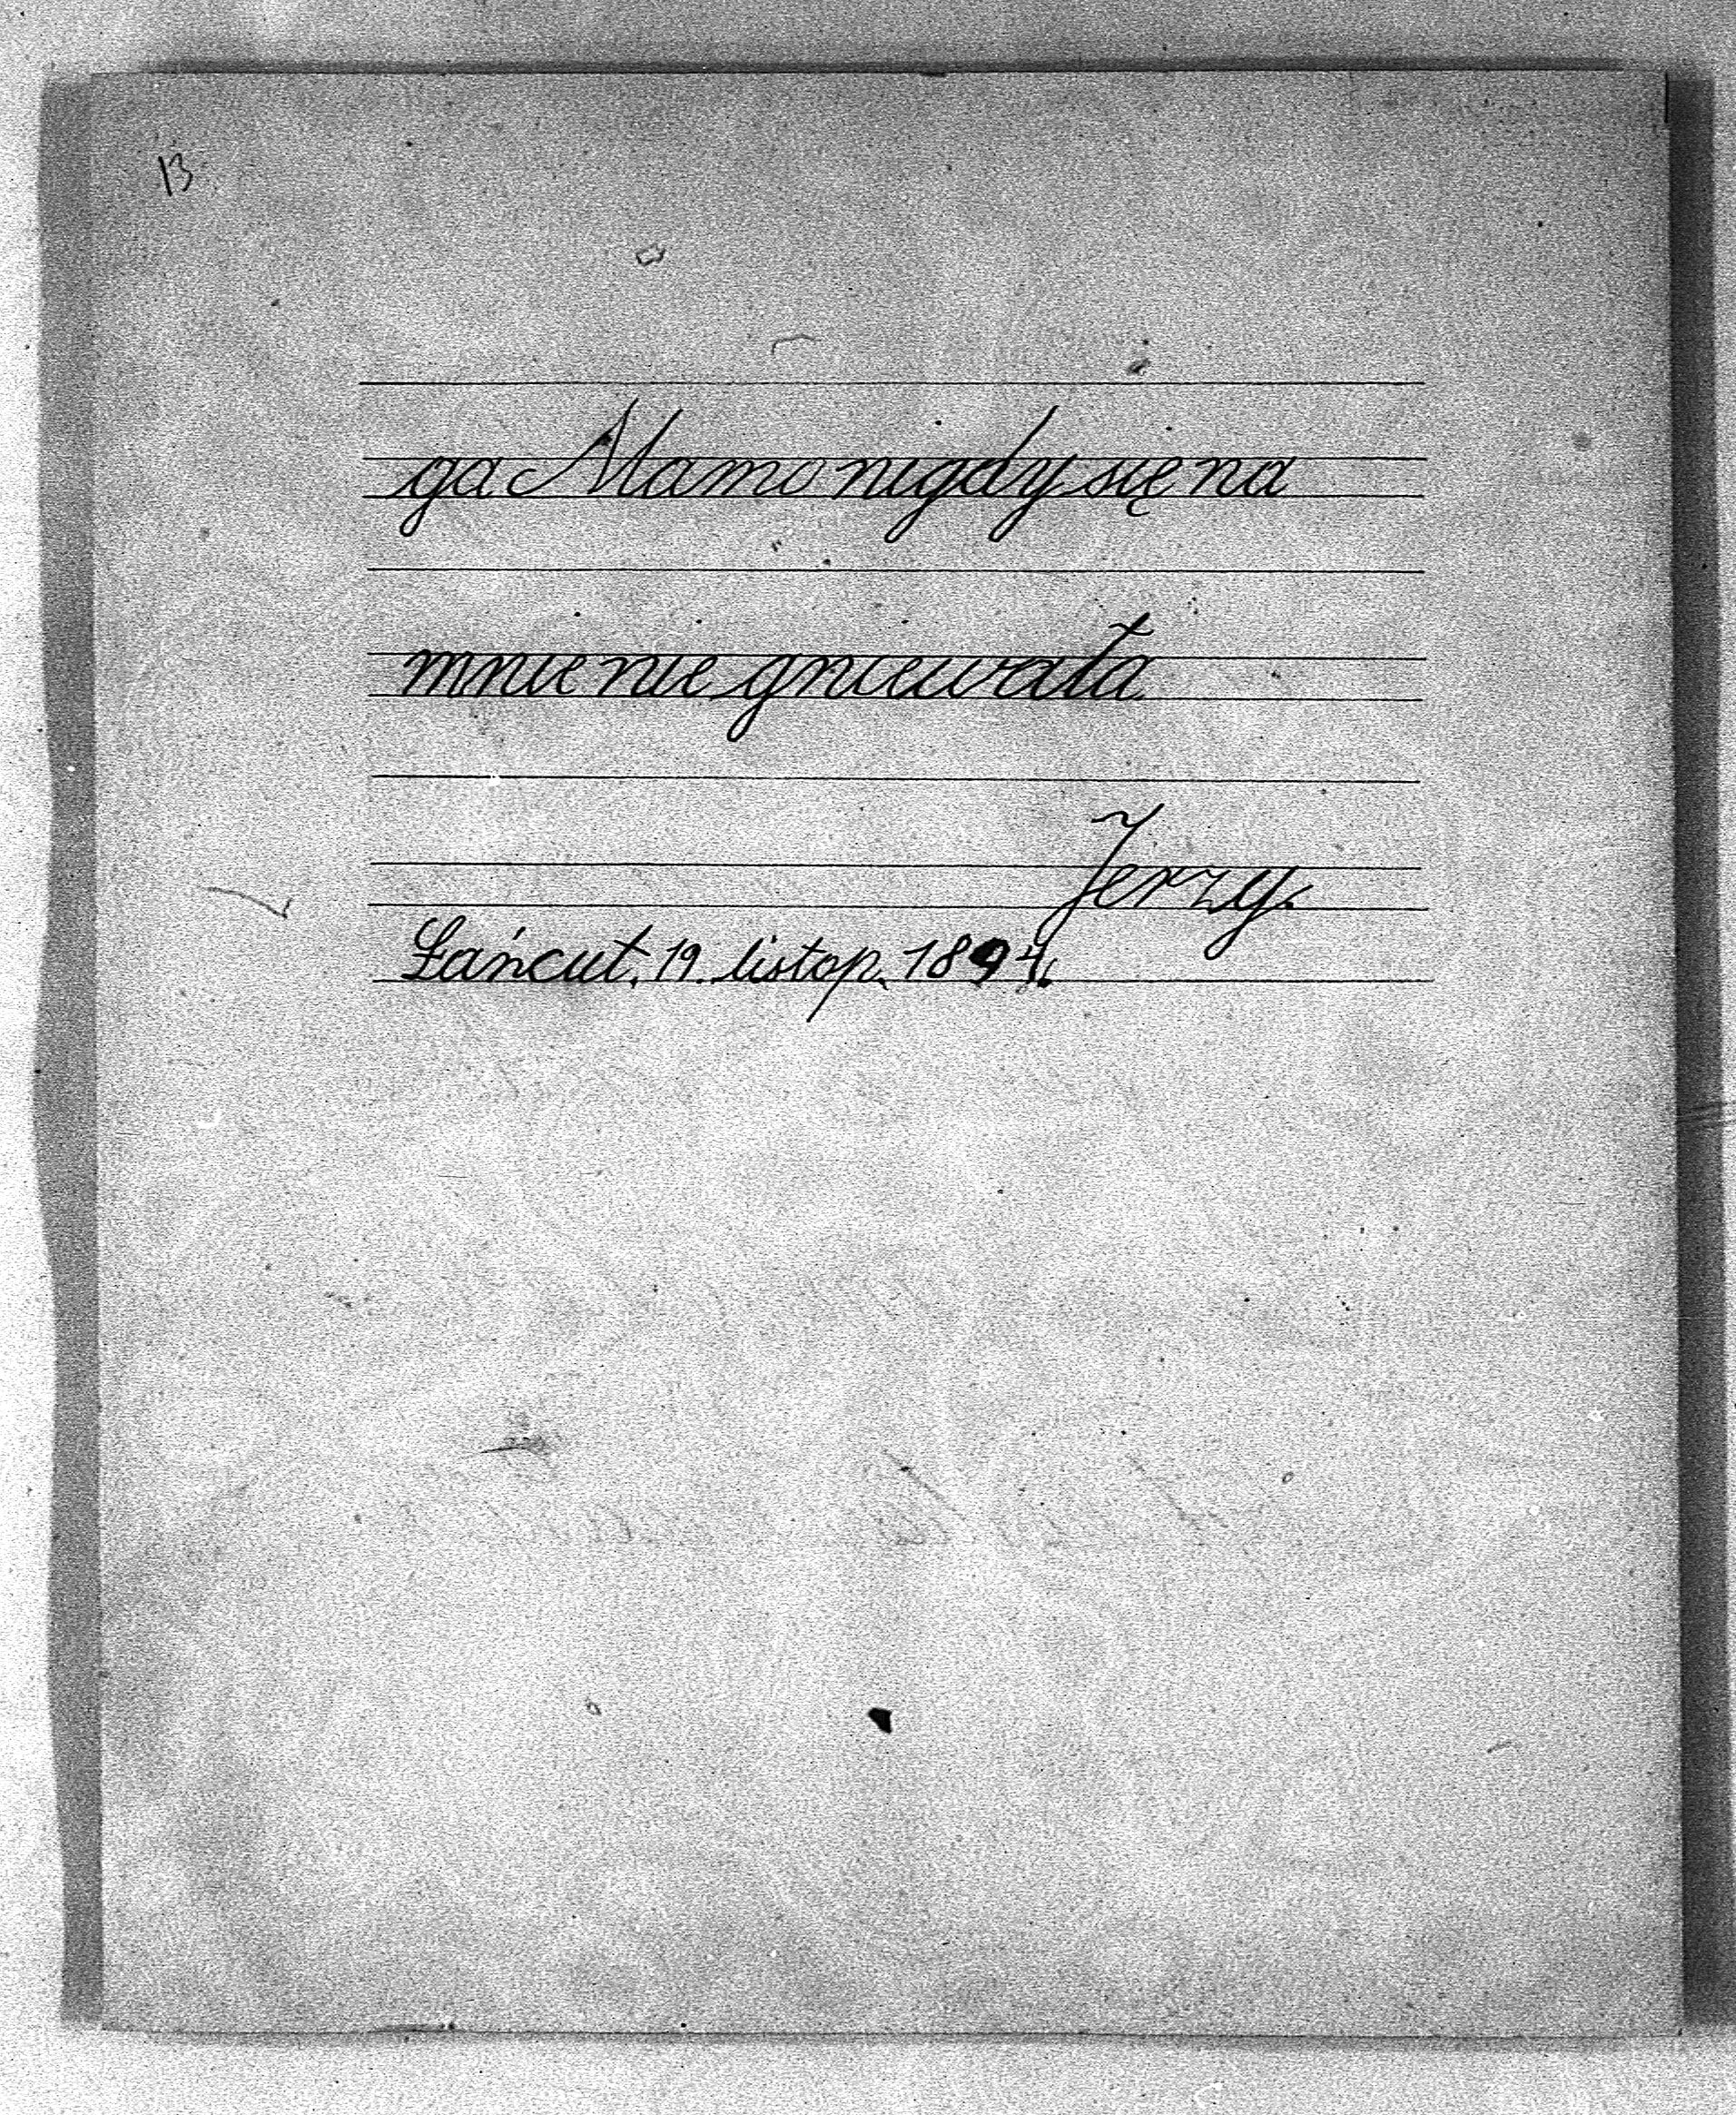 13
ga Mamo nigdy się na
mnie nie gniewała
Jerzy.
Łańcut, 19. listop. 1894.